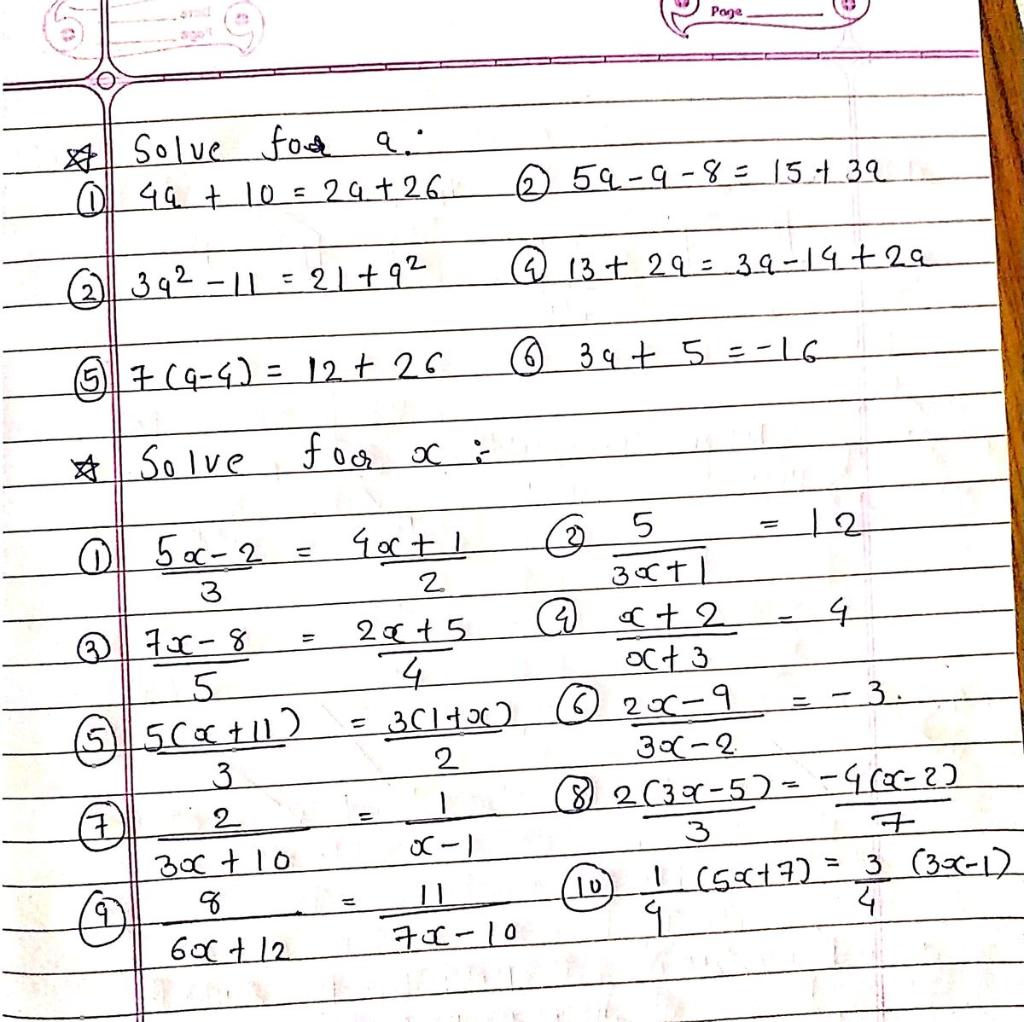 Page
☆ Solve for a:
① 4a + 10 = 2a + 26 ② 5a - a - 8 = 15 + 3a
② 3a² - 11 = 21 + a² ④ 13 + 2a = 3a - 14 + 2a
⑤ 7(a-4) = 12 + 26 ⑥ 3a + 5 = -16
☆ Solve for x :-
① (5x-2)/3 = (4x+1)/2 ② 5/(3x+1) = 12
③ (7x-8)/5 = (2x+5)/4 ④ (x+2)/(x+3) = 4
⑤ 5(x+11)/3 = 3(1+x)/2 ⑥ (2x-9)/(3x-2) = -3.
⑦ 2/(3x+10) = 1/(x-1) ⑧ 2(3x-5)/3 = -4(x-2)/7
⑨ 8/(6x+12) = 11/(7x-10) ⑩ 1/4 (5x+7) = 3/4 (3x-1)